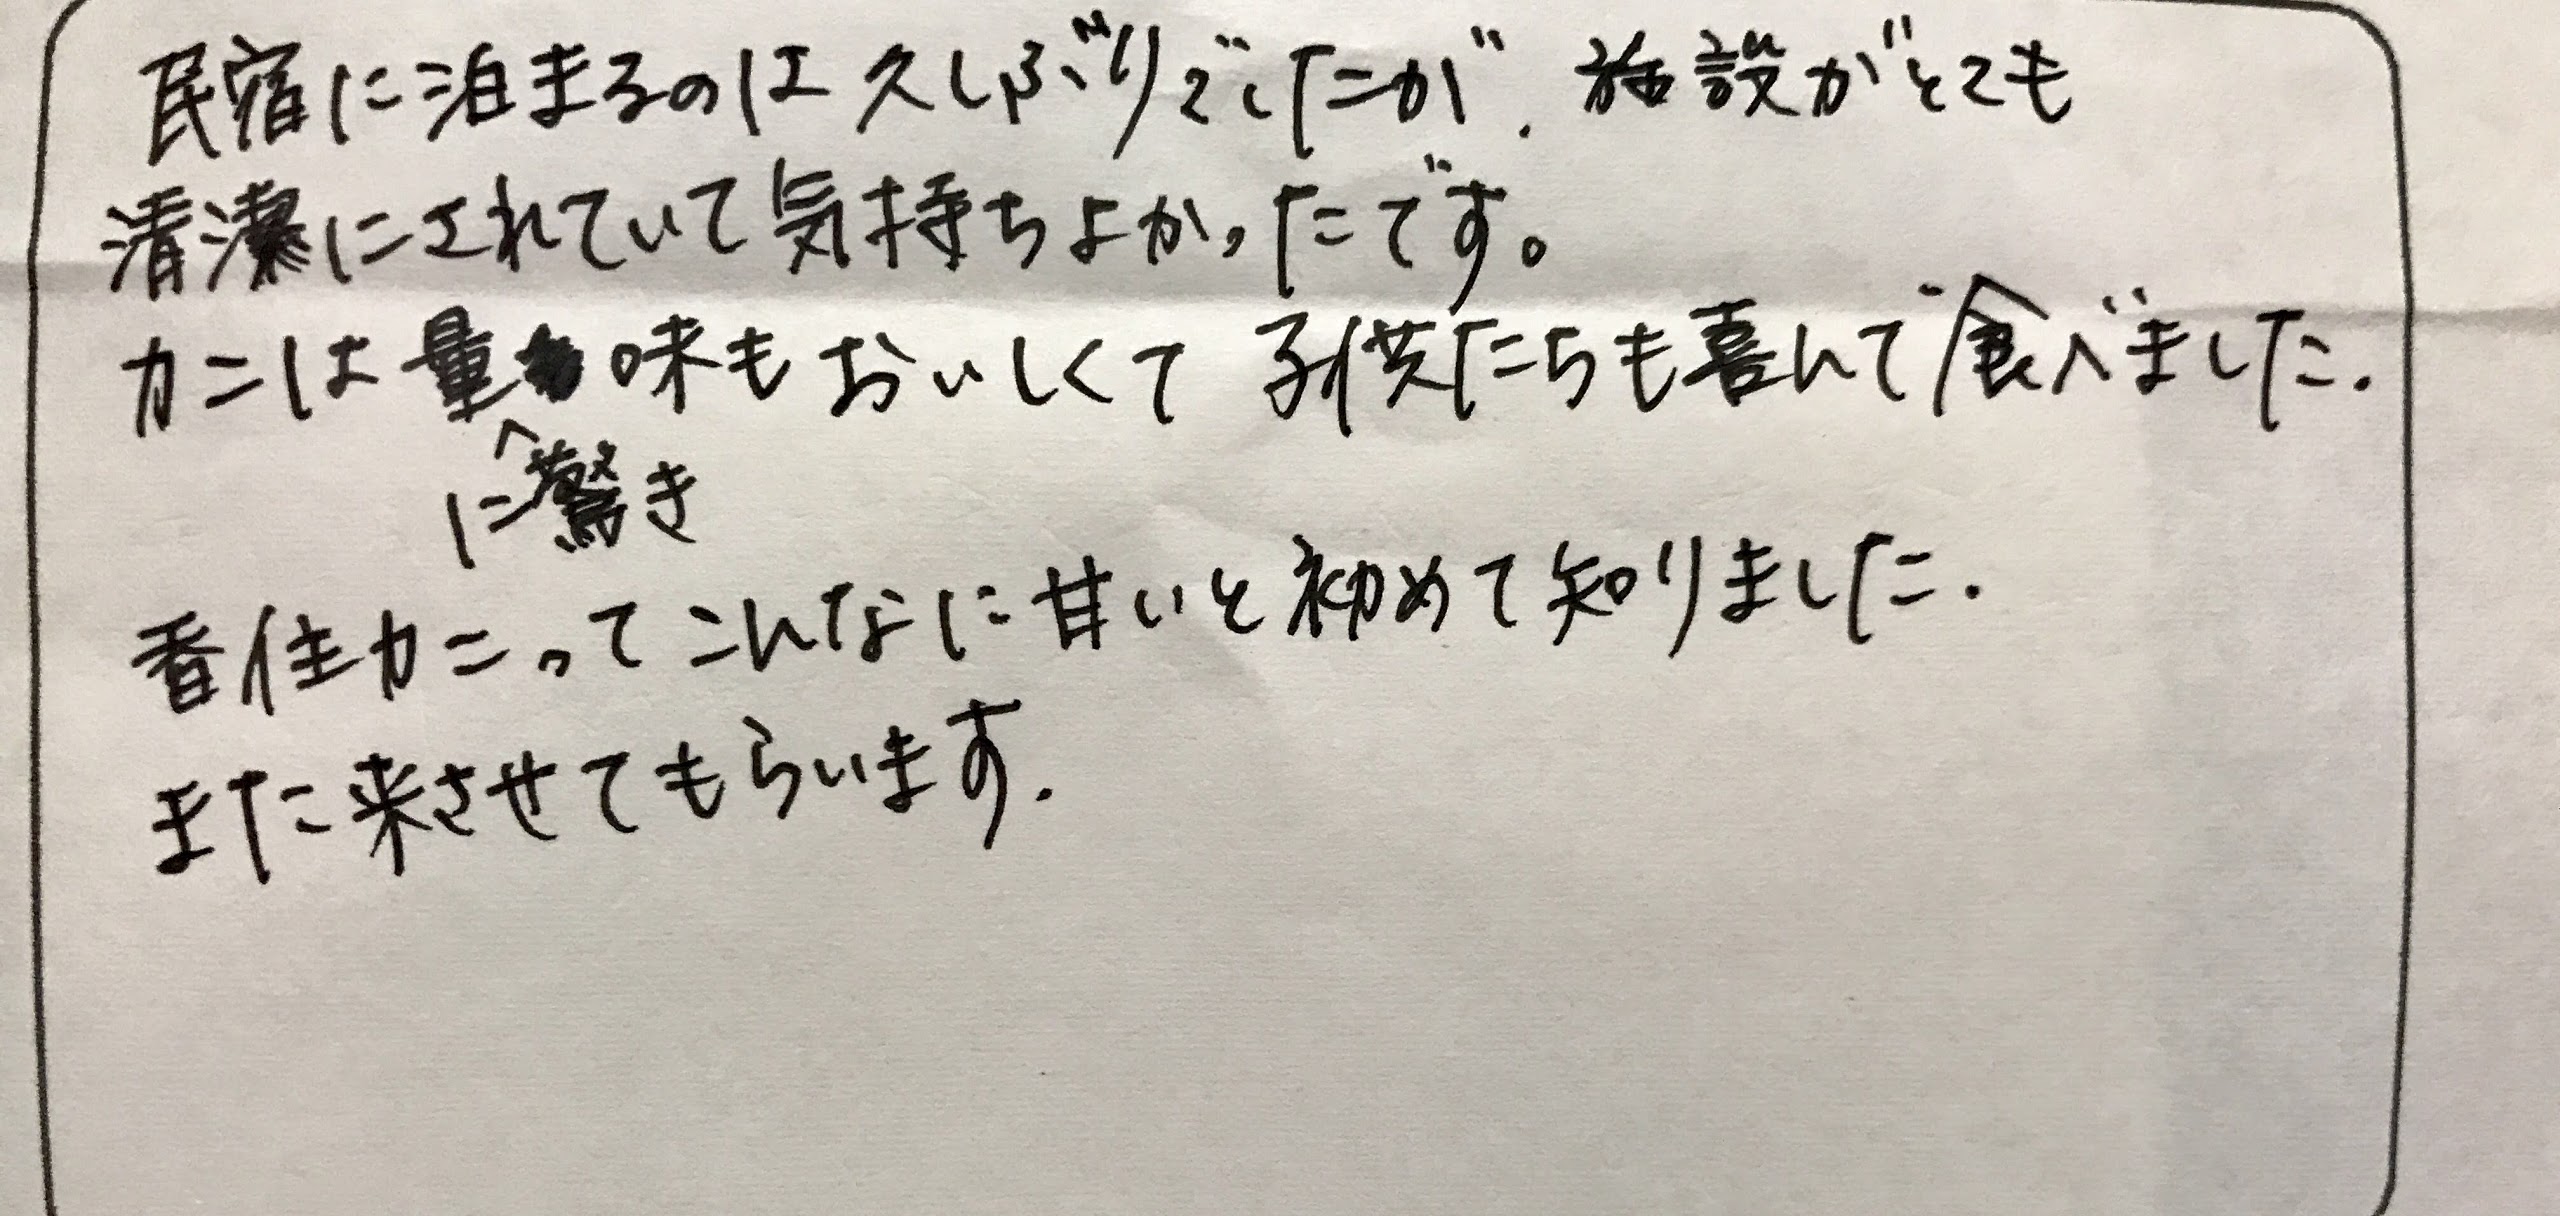 民宿に泊まるのは久しぶりでしたが、施設がとても
清潔にされていて気持ちよかったです。
カニは量味もおいしくて子供たちも喜んで食べました.
に驚き
香住カニってこんなに甘いと初めて知りました.
また来させてもらいます.